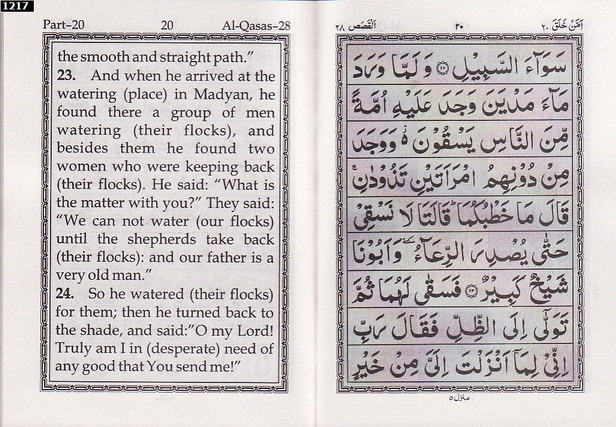 1217
Part-20 20 Al-Qasas-28
the smooth and straight path.”
23. And when he arrived at the
watering (place) in Madyan, he
found there a group of men
watering (their flocks), and
besides them he found two
women who were keeping back
(their flocks). He said: “What is
the matter with you?” They said:
“We can not water (our flocks)
until the shepherds take back
(their flocks): and our father is a
very old man.”
24. So he watered (their flocks)
for them; then he turned back to
the shade, and said:”O my Lord!
Truly am I in (desperate) need of
any good that You send me!”
اَمَّنْ خَلَقَ ٢٠ ٢٠ اَلْقَصَص ٢٨
سَوَآءَ السَّبِيْلِ ۝٢٢ وَ لَمَّا وَرَدَ
مَآءَ مَدْيَنَ وَجَدَ عَلَيْهِ اُمَّةً
مِّنَ النَّاسِ يَسْقُوْنَ ۬ وَوَجَدَ
مِنْ دُوْنِهِمُ امْرَاَتَيْنِ تَذُوْدٰنِ ۚ
قَالَ مَا خَطْبُكُمَا ؕ قَالَتَا لَا نَسْقِيْ
حَتّٰى يُصْدِرَ الرِّعَآءُ ٚ وَاَبُوْنَا
شَيْخٌ كَبِيْرٌ ۝٢٣ فَسَقٰى لَهُمَا ثُمَّ
تَوَلّٰى اِلَى الظِّلِّ فَقَالَ رَبِّ
اِنِّيْ لِمَاۤ اَنْزَلْتَ اِلَيَّ مِنْ خَيْرٍ
منزل ٥